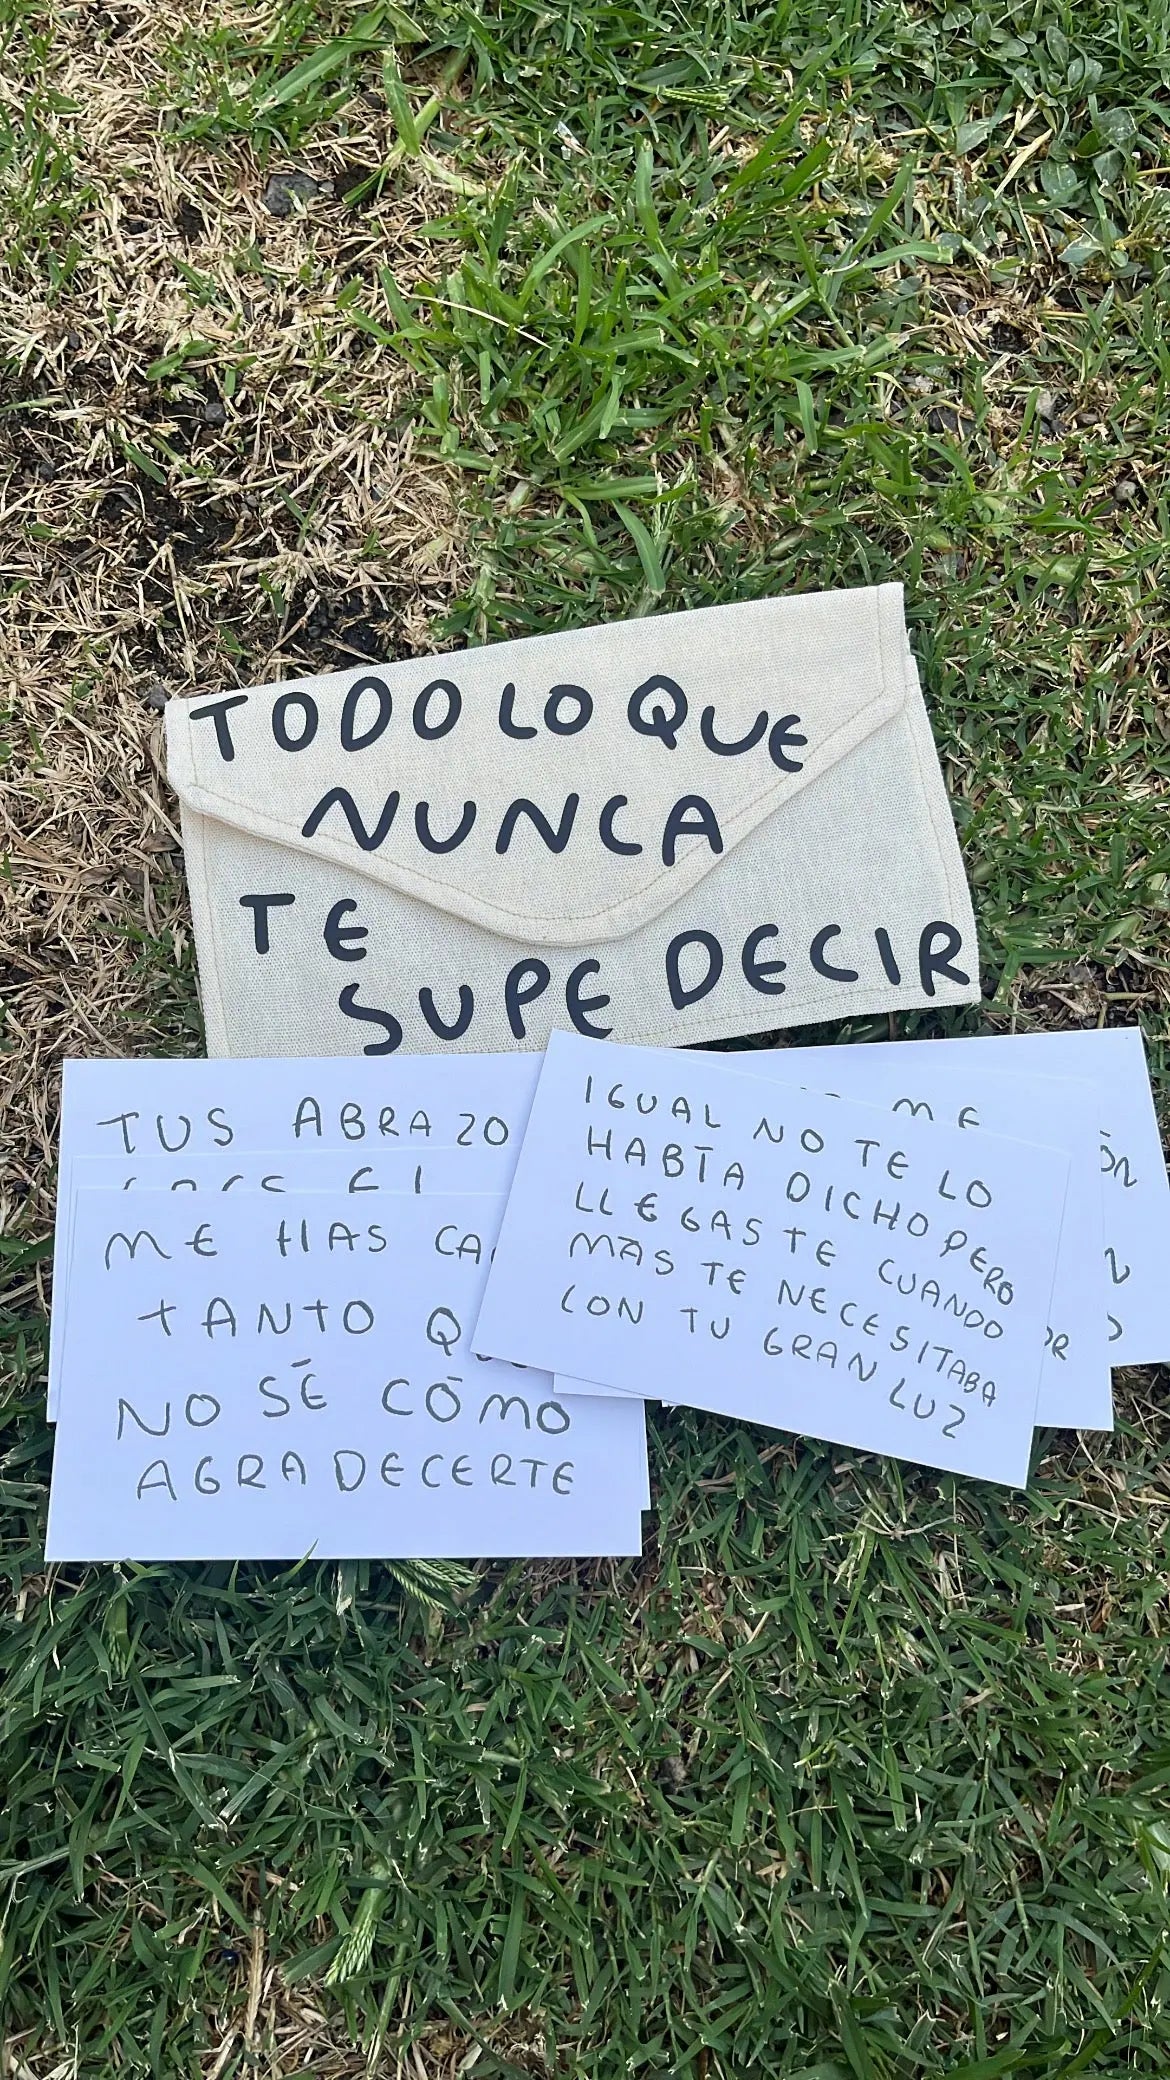 TODO LO QUE
NUNCA
TE
SUPE DECIR
TUS ABRAZO
EL
ME HAS
TANTO
NO SÉ CÓMO
AGRADECERTE
IGUAL NO TE LO
HABÍA DICHO PERO
LLEGASTE CUANDO
MÁS TE NECESITABA
CON TU GRAN LUZ
ME